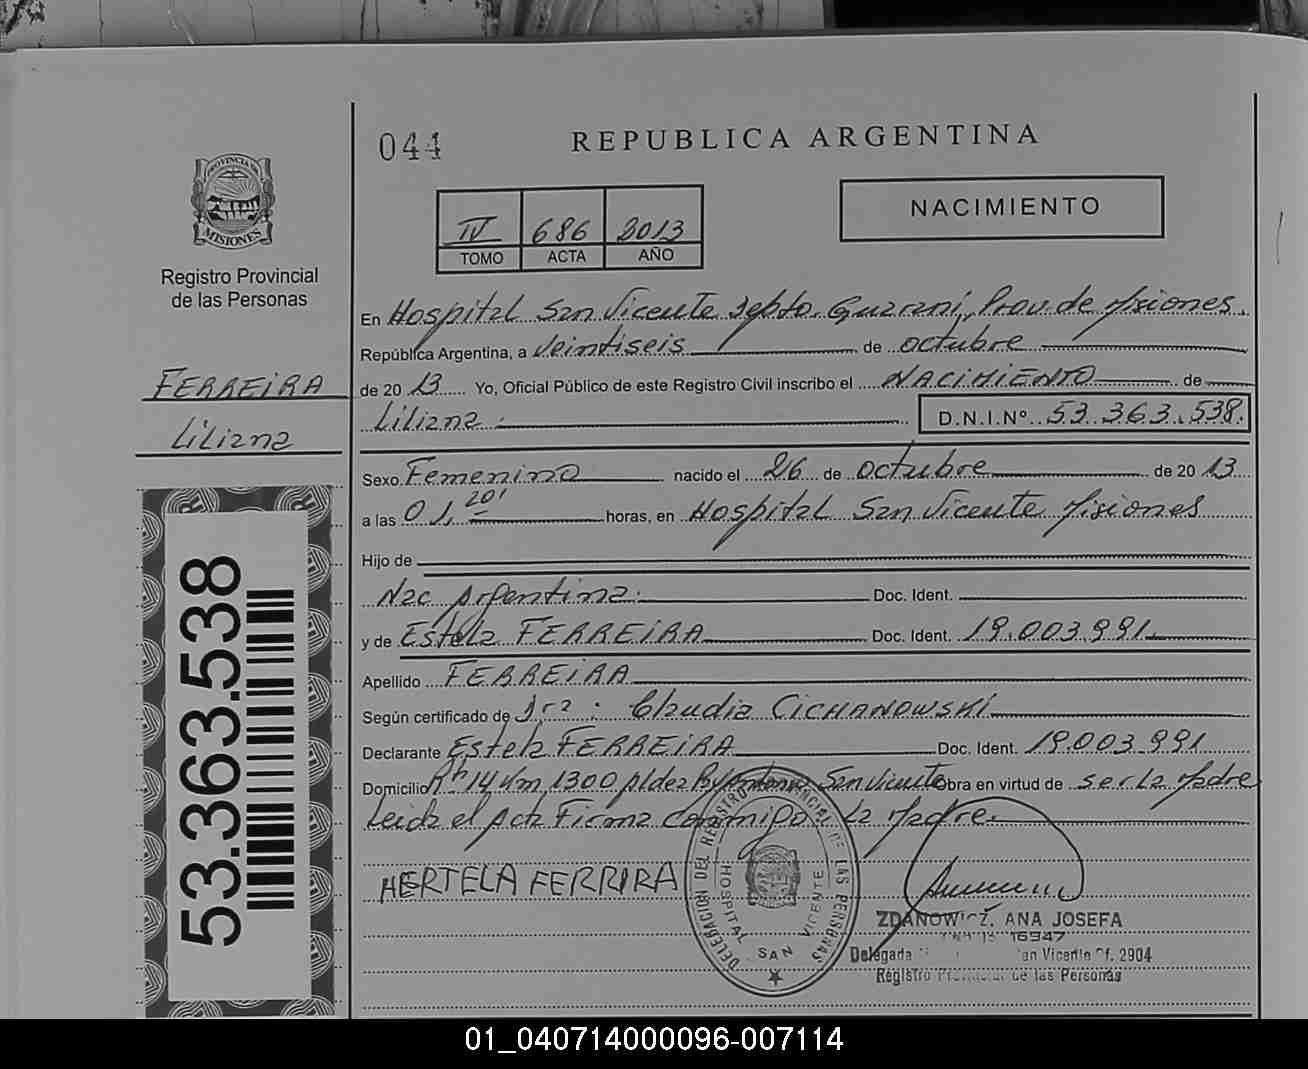 044
REPUBLICA ARGENTINA
PROVINCIA DE
MISIONES
Registro Provincial
de las Personas
IV 686 2013
TOMO ACTA AÑO
NACIMIENTO
En Hospital San Vicente Depto. Guarani, Prov. de Misiones.
República Argentina, a veintiseis de octubre
de 2013 Yo, Oficial Público de este Registro Civil inscribo el NACIMIENTO de
Liliana D.N.I.Nº 53.363.538.
FERREIRA
Liliana
Sexo Femenino nacido el 26 de octubre de 2013
a las 01,20' horas, en Hospital San Vicente Misiones
Hijo de
Nac Argentina. Doc. Ident.
y de Estela FERREIRA Doc. Ident. 19.003.991
Apellido FERREIRA
Según certificado de Dra: Claudia CICHANOWSKI
Declarante Estela FERREIRA Doc. Ident. 19.003.991
Domicilio Km 1300 San Vicente Obra en virtud de ser la Madre
Leida el Acta Firma conmigo La Madre.
HERTELA FERRIRA
DELEGACION DEL REGISTRO PROVINCIAL DE LAS PERSONAS
HOSPITAL SAN VICENTE
ZDANOWICZ, ANA JOSEFA
16947
Delegada San Vicente Of. 2904
Registro Provincial de las Personas
53.363.538
01_040714000096-007114